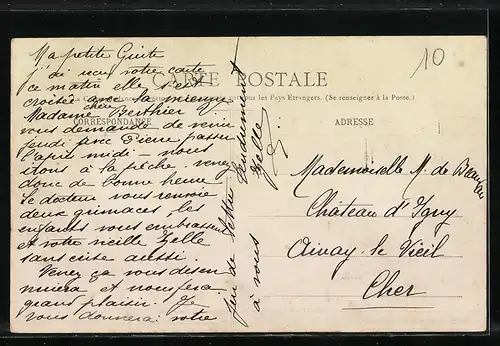 Ma petite Guite
j'ai reçu votre carte
ce matin elle s'est
croisée avec la mienne
chère
Madame Berthier
vous demande de venir
jeudi avec Pierre passer
l'après midi – nous
irons à la pêche. venez
donc de bonne heure
Le docteur vous renvoie
deux grimaces, les
enfants vous embrassent
et votre vieille Zelle
sans cesse aussi.
Venez ça vous désen
nuiera et nous fera
grand plaisir. Je
vous donnerai votre
jeu de lettre
à vous
Tendrement
Zelle
CARTE POSTALE
tous les Pays Etrangers. (Se renseigner à la Poste.)
CORRESPONDANCE
ADRESSE
10
Mademoiselle M. de
Château d'Igny
Ainay-le Vieil
Cher